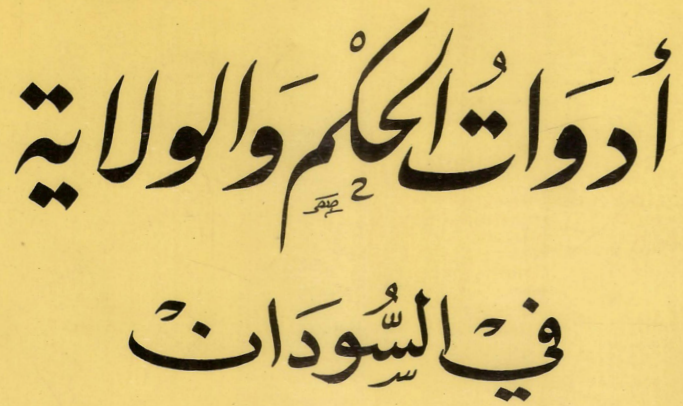 أدَوَاتُ الحكْم وَالولاية
في السُّودَان